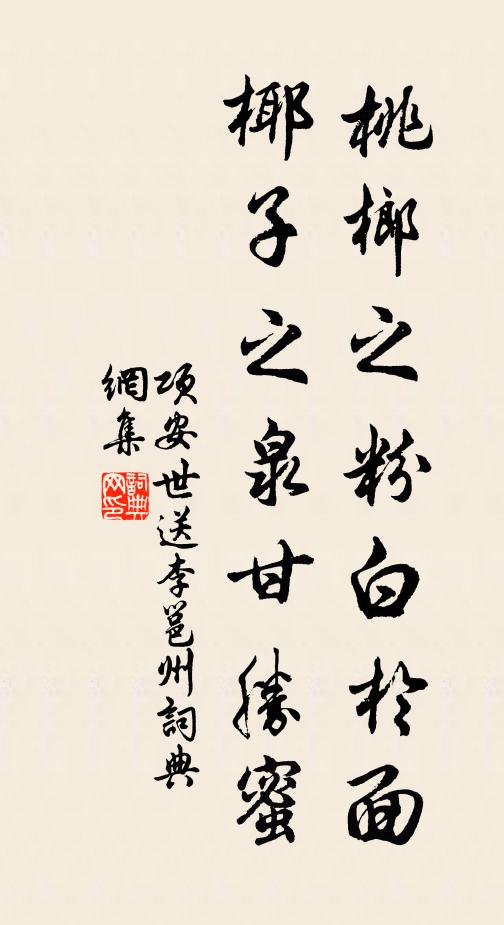 桃榔之粉白於面
椰子之泉甘勝蜜
項安世送李邕州詞典
網集
詞典
网印